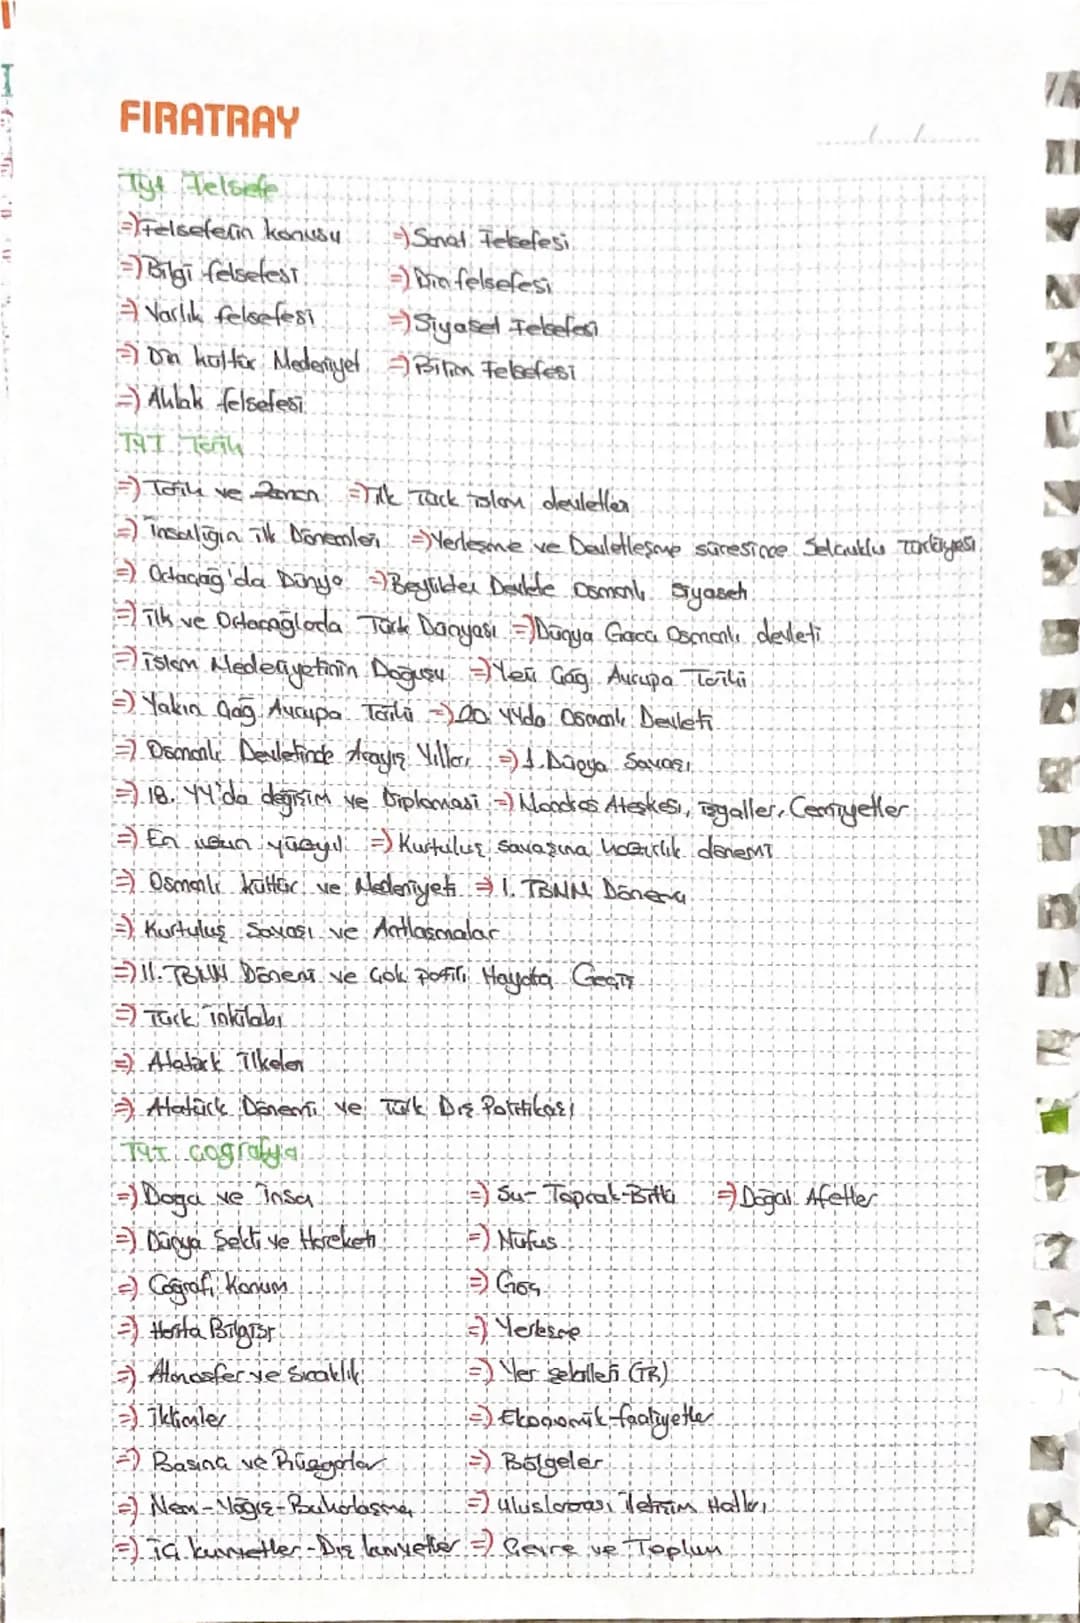 FIRATRAY
Tyt Felsefe
=) Felsefenin konusu =) Sanat Felsefesi
=) Bilgi felsefesi =) Din felsefesi
=) Varlık felsefesi =) Siyaset Felsefesi
=) Din kültür Medeniyet =) Bilim Felsefesi
=) Ahlak felsefesi
TYT Tarih
=) Tarih ve Zaman =) İlk Türk islam devletler
=) İnsalığın ilk Dönemleri =) Yerleşme ve Devletleşme süresince Selçuklu Türkiyesi
=) Ortaçağ'da Dünya =) Beylikten Devlete Osmanlı Siyaseti
=) İlk ve Ortaçağlarda Türk Dünyası =) Dünya Gücü Osmanlı devleti
=) İslam Medeniyetinin Doğuşu =) Yeni Çağ Avrupa Tarihi
=) Yakın Çağ Avrupa Tarihi =) 20. YYda Osmanlı Devleti
=) Osmanlı Devletinde Arayış Yılları =) 1. Dünya Savaşı
=) 18. YY'da değişim ve Diplomasi =) Mondros Ateşkesi, işgaller, Cemiyetler
=) En uzun yüzyıl =) Kurtuluş savaşına hazırlık dönemi
=) Osmanlı kültür ve Medeniyeti =) I. TBMM Dönemi
=) Kurtuluş Savaşı ve Antlaşmalar
=) II. TBMM Dönemi ve Çok partili Hayata Geçiş
=) Türk inkılabı
=) Atatürk İlkeleri
=) Atatürk Dönemi ve Türk Dış Politikası
TYT coğrafya
=) Doğa ve İnsa =) Su-Toprak-Bitki =) Doğal Afetler
=) Dünya Şekli ve Hareketi =) Nüfus
=) Coğrafi Konum =) Göç
=) Harita Bilgisi =) Yerleşme
=) Atmosfer ve Sıcaklık =) Yer şekilleri (TR)
=) İklimler =) Ekonomik faaliyetler
=) Basınç ve Rüzgarlar =) Bölgeler
=) Nem-Yağış-Buharlaşma =) Uluslararası İletişim Hatları
=) İç kuvvetler-Dış kuvvetler =) Çevre ve Toplum